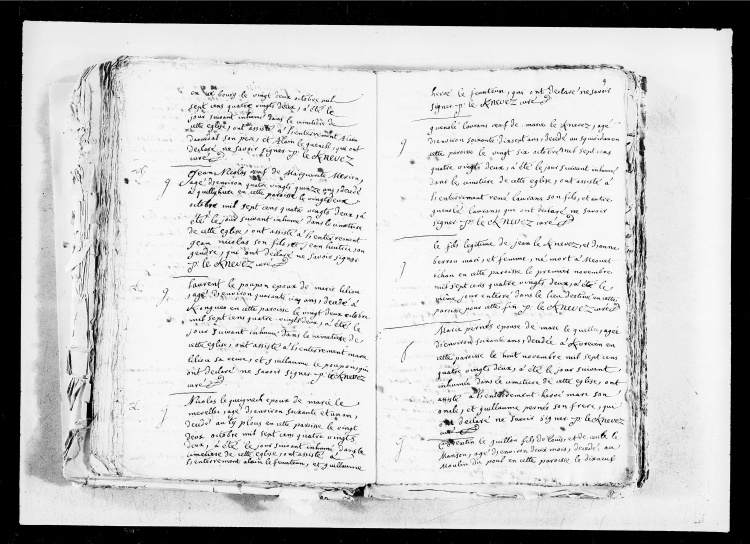 en ce bourg le vingt deux octobre mil
sept cens quatre vingts deux, a été le
jour suivant inhumé dans le cimetiere de
cette eglise, ont assisté à l'enterrement
son pere, et alain le guenel, qui ont
declaré ne savoir signer p: le Knevez
curé
Jean Nicolas veuf de Marguerite
agé d'environ quatre vingts quinze ans, decedé
à en cette paroisse le vingt deux
octobre mil sept cens quatre vingts deux, a
été le jour suivant inhumé dans le cimetiere
de cette eglise, ont assisté à l'enterrement
jean nicolas son fils, et jean son
gendre, qui ont declaré ne savoir signer
p: le Knevez curé
Laurent le poupon epoux de marie
agé d'environ quarante cinq ans, decedé à
en cette paroisse le vingt deux octobre
mil sept cens quatre vingts deux, a été le
jour suivant inhumé dans le cimetiere de
cette eglise, ont assisté à l'enterrement marie
sa veuve, et guillaume le poupon, qui
ont declaré ne savoir signer p: le Knevez
curé
Nicolas le epoux de marie le
agé d'environ soixante et un an,
decedé au ty plous en cette paroisse le vingt
deux octobre mil sept cens quatre vingts
deux, a été le jour suivant inhumé dans le
cimetiere de cette eglise, ont assisté à
l'enterrement alain le, et guillaume
9
hervé le, qui ont declaré ne savoir
signer p: le Knevez curé
guenolé laurans veuf de marie le Knevez, agé
d'environ soixante dix sept ans, decedé au
cette paroisse le vingt six octobre mil sept cens
quatre vingts deux, a été le jour suivant inhumé
dans le cimetiere de cette eglise, ont assisté à
l'enterrement rené laurans son fils, et autre
guenolé laurans, qui ont declaré ne savoir
signer p: le Knevez curé
le fils legitime de jean le Knevez, et d'anne
berrou mari, et femme, né mort à
en cette paroisse le premier novembre
mil sept cens quatre vingts deux, a été le
même jour enterré dans le lieu destiné en cette
paroisse pour cette fin p: le Knevez curé
Marie pernés epouse de marc le, agée
d'environ soixante ans, decedée à Korven en
cette paroisse le huit novembre mil sept cens
quatre vingts deux, a été le jour suivant
inhumée dans le cimetiere de cette eglise, ont
assisté à l'enterrement hervé marc son
oncle, et guillaume pernés son frere, qui
ont declaré ne savoir signer p: le Knevez
curé
Corentin le guillou fils de louis, et de
agé d'environ deux mois, decedé au
Moulin du poul en cette paroisse le dixneuf